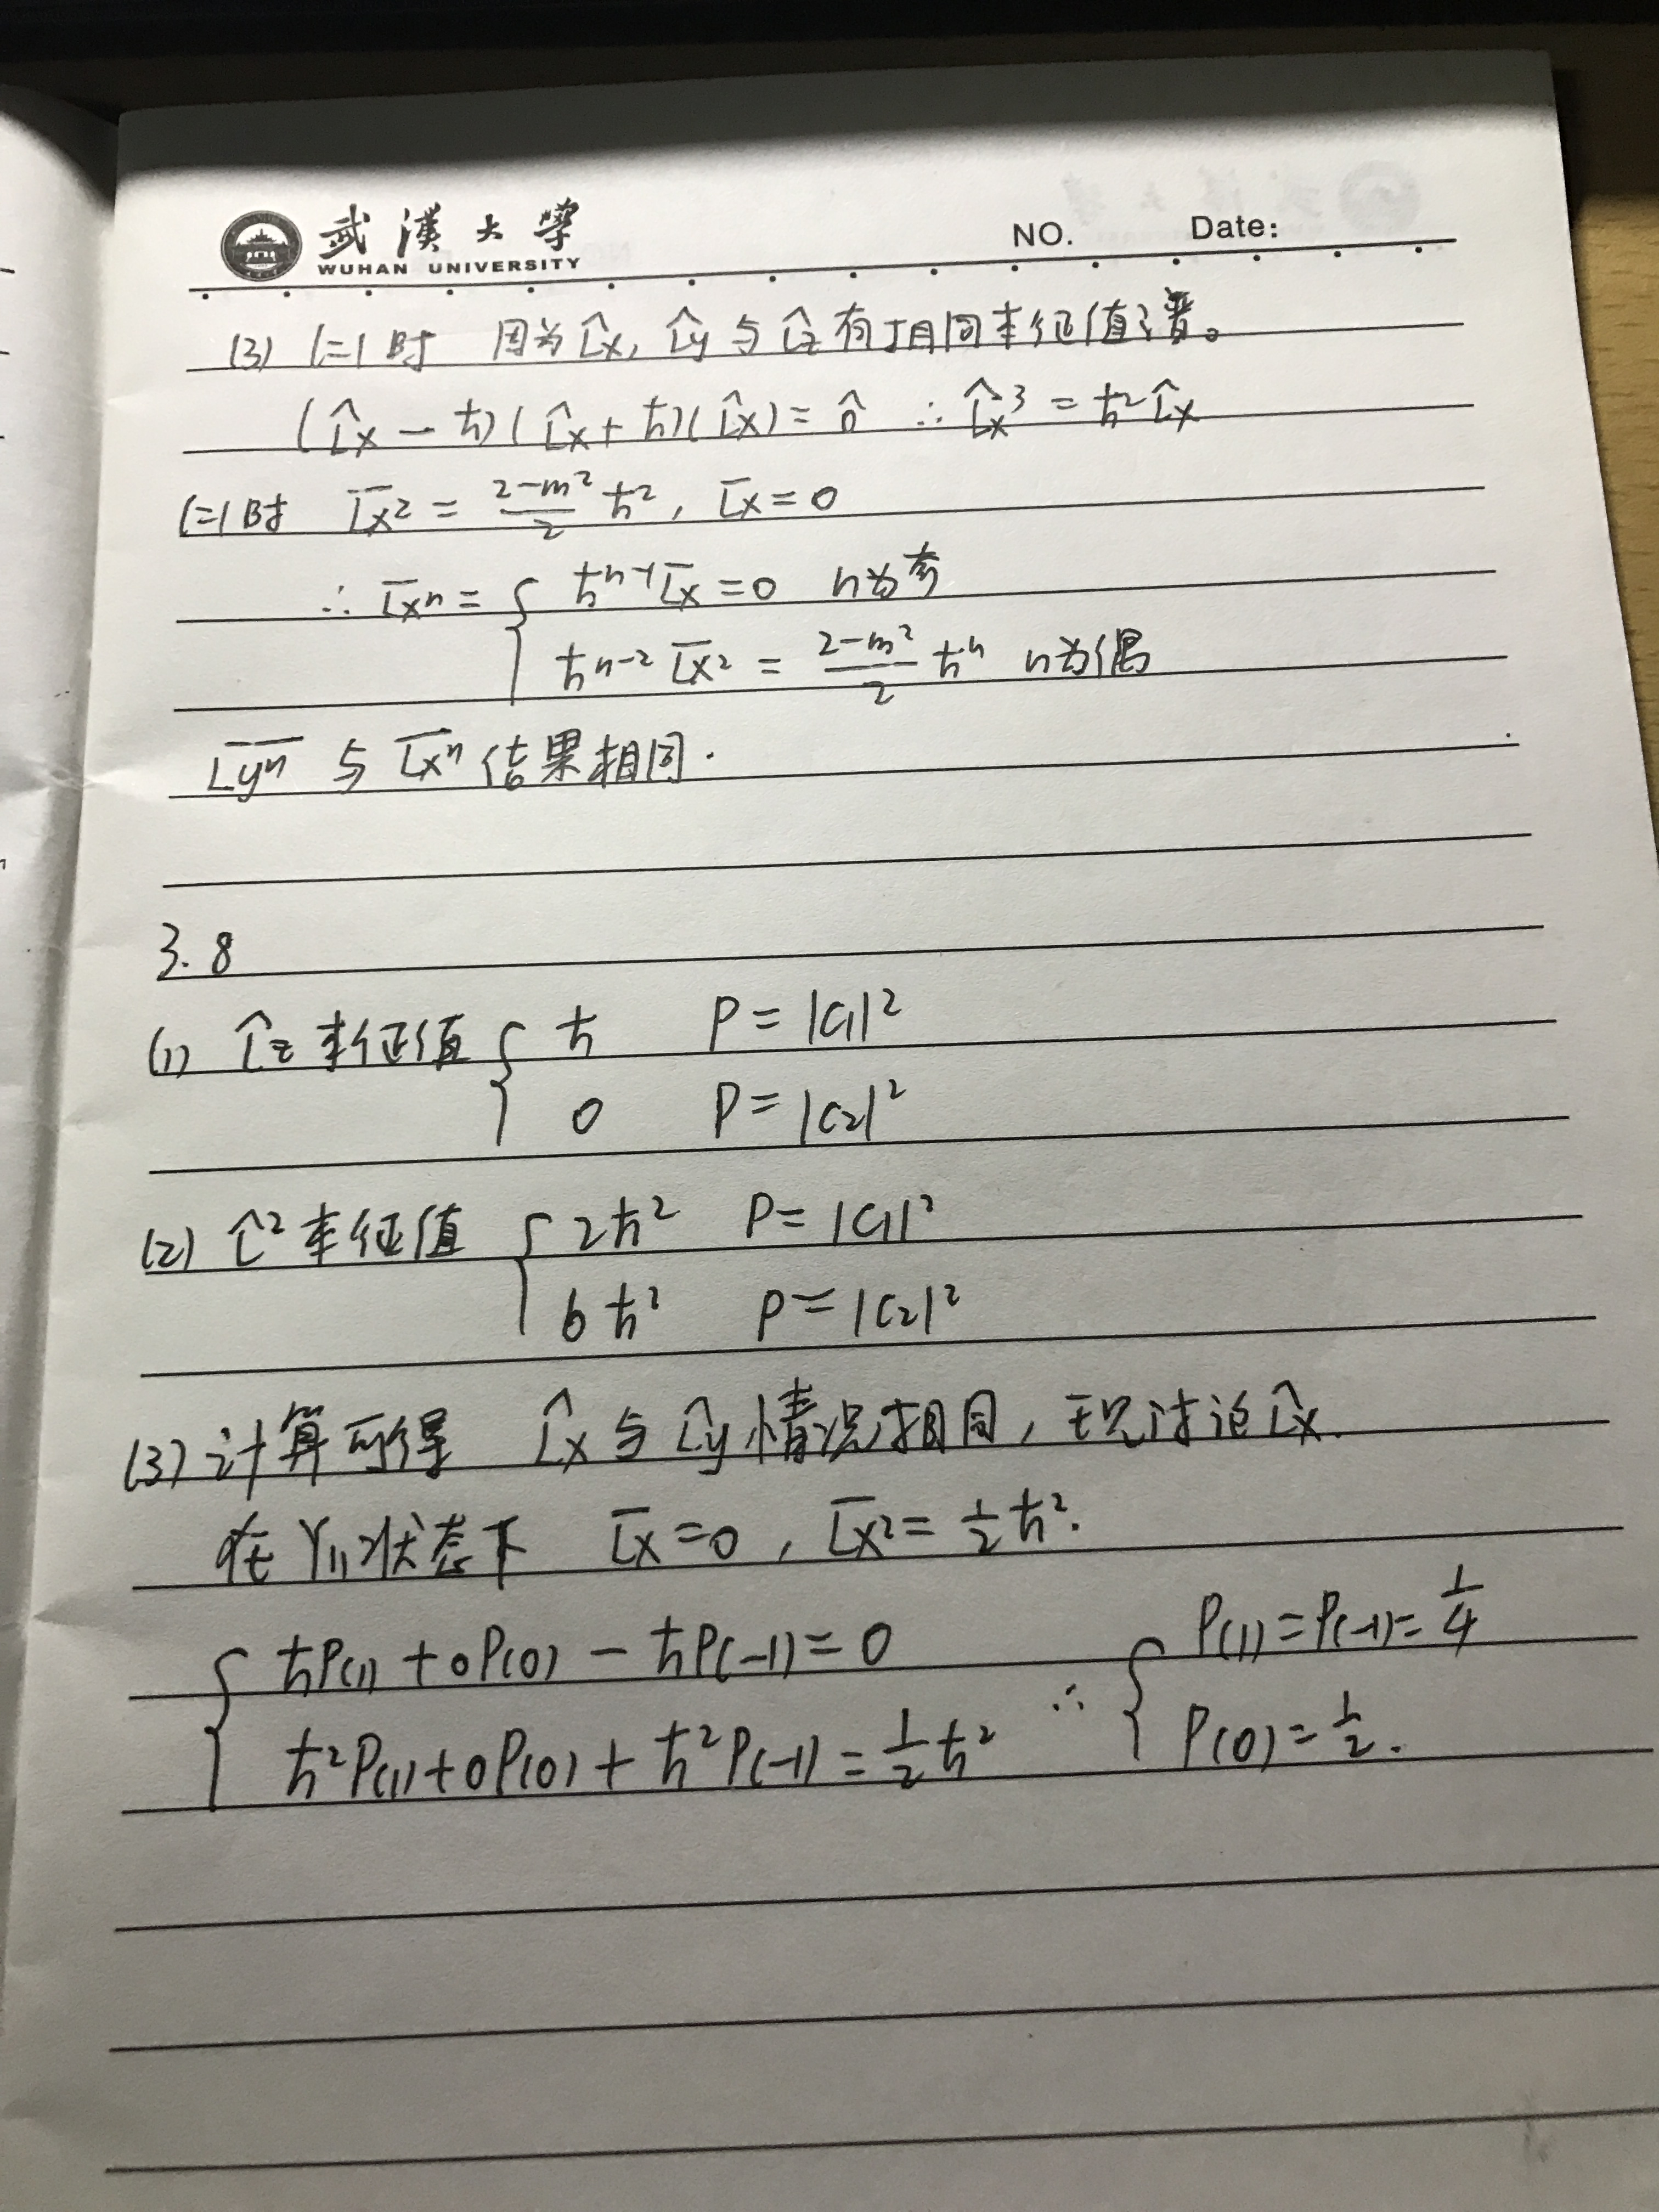 武漢大學
WUHAN UNIVERSITY
NO. Date:
(3) l=1时 因为L̂x, L̂y与L̂z有相同本征值谱。
(L̂x − ħ)(L̂x + ħ)(L̂x) = 0̂ ∴ L̂x³ = ħ²L̂x
l=1时 L̅x̅² = (2−m²)/2 ħ², L̅x̅ = 0
∴ L̅x̅ⁿ = { ħⁿ⁻¹L̅x̅ = 0 n为奇
ħⁿ⁻² L̅x̅² = (2−m²)/2 ħⁿ n为偶
L̅y̅ⁿ 与 L̅x̅ⁿ 结果相同.
3.8
(1) L̂z本征值 { ħ P = |C₁|²
0 P = |C₂|²
(2) L̂²本征值 { 2ħ² P = |C₁|²
6ħ² P = |C₂|²
(3) 计算可得 L̂x与L̂y情况相同, 现讨论L̂x.
在Y₁₁状态下 L̅x̅ = 0, L̅x̅² = ½ħ².
{ ħP(1) + 0P(0) − ħP(-1) = 0 ∴ { P(1) = P(-1) = 1/4
ħ²P(1) + 0P(0) + ħ²P(-1) = ½ħ² P(0) = ½.